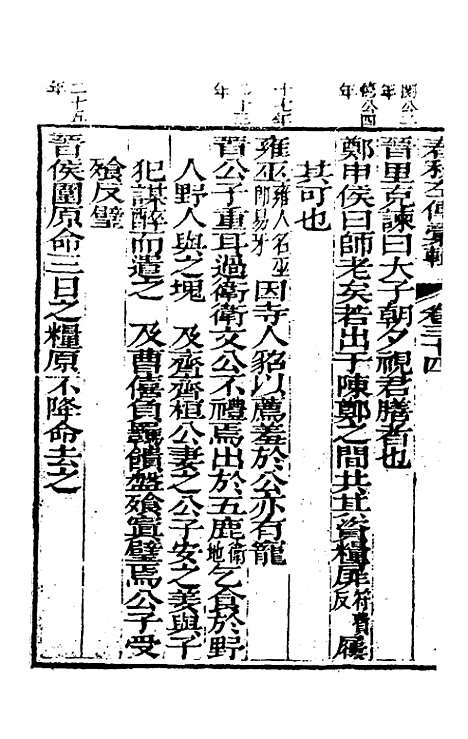 春秋左傳彙輯 卷三十四
閔公二年
晉里克諫曰大子朝夕視君膳者也
僖公四年
鄭申侯曰師老矣若出于陳鄭之間共其資糧屝符費反屨
其可也
十七年
雍巫雍人名巫即易牙因寺人貂以薦羞於公亦有寵
二十三年
晉公子重耳過衛衛文公不禮焉出於五鹿衛地乞食於野
人野人與之塊 及齊齊桓公妻之公子安之姜與子
犯謀醉而遣之 及曹僖負羈饋盤飧寘璧焉公子受
飧反璧
二十五年
晉侯圍原命三日之糧原不降命去之